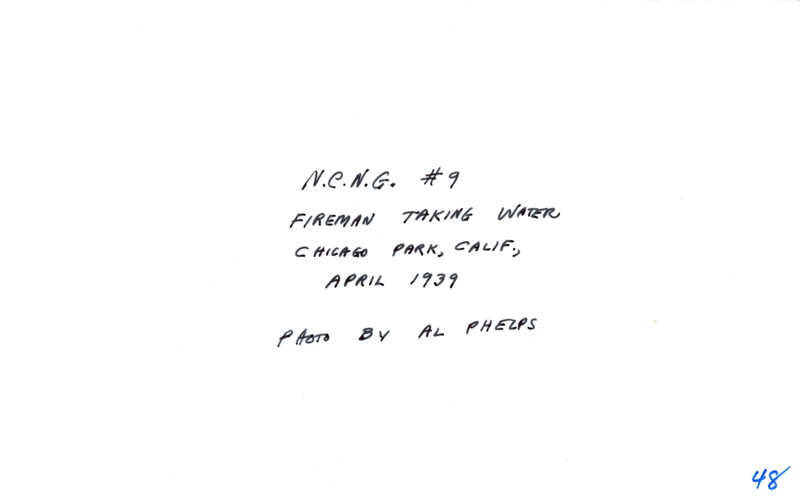 N.C.N.G. #9
FIREMAN TAKING WATER
CHICAGO PARK, CALIF.,
APRIL 1939
PHOTO BY AL PHELPS
48